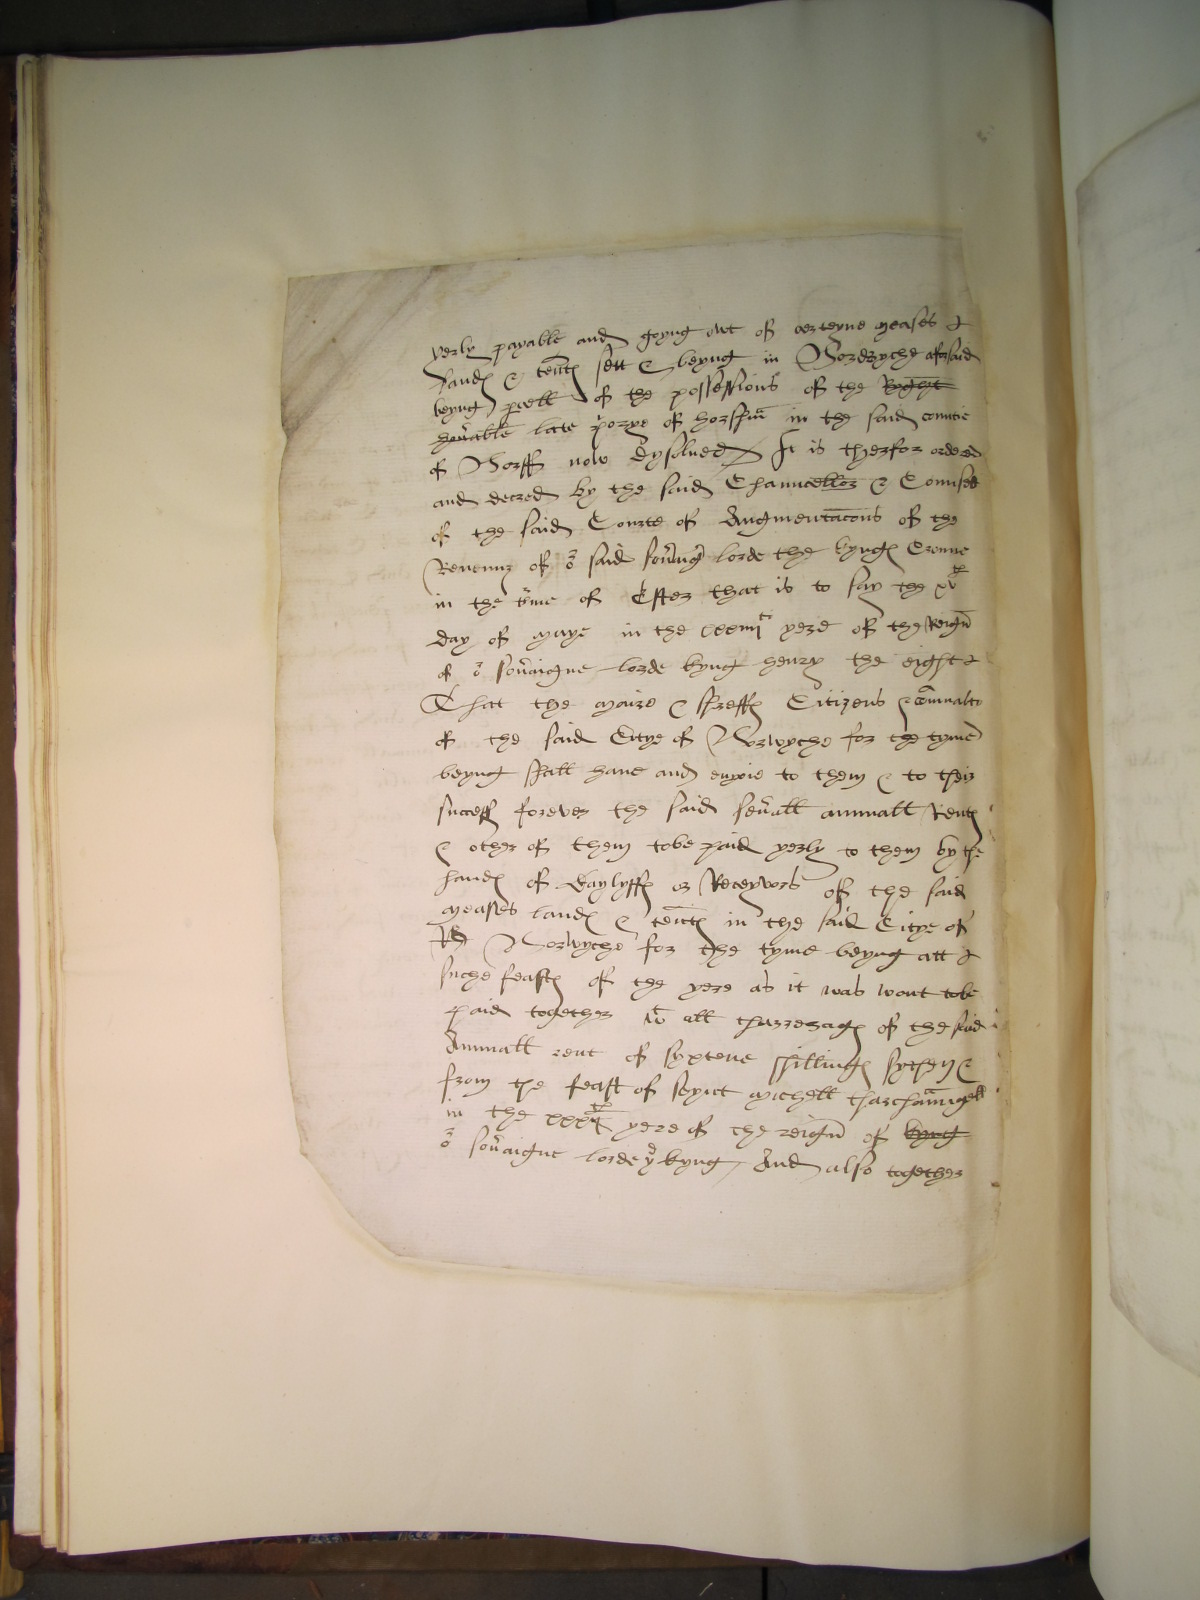 yerly payable and goyng owt of certeyne meases &
landes & tentes sett & beyng in Norwyche aforsaid
beyng parcell of the possessions of the
late pory of horsham in the said comitie
of Norff now dysolued It is therfor ordered
and decred by the said Chauncellor & Counsell
of the said Courte of Augmentacons of the
Revenuz of or said souaigne lorde the kynges Crowne
in the terme of Ester that is to say the xvth
day of maye in the xxxiiiith yere of the Reign
of or souaigne lorde kyng henry the eight
That the maire & shreffes Citizens & comnalte
of the said Citye of Norwyche for the tyme
beyng shall haue and enyoie to them & to their
success forever the said seuall annuall Rentes
& other of them tobe paid yerly to them by the
handes of Baylyffes or Receyvors of the said
meases landes & tentes in the said Citye of
Norwyche for the tyme beyng att
suche feastes of the yere as it was wont tobe
paid together wt all tharrerages of the said
Annuall rent of syxtene shillinges sythen
from the feast of seynt michell tharchaungell
in the yere of the reign of kyng
or souaigne lorde ye kyng And also together